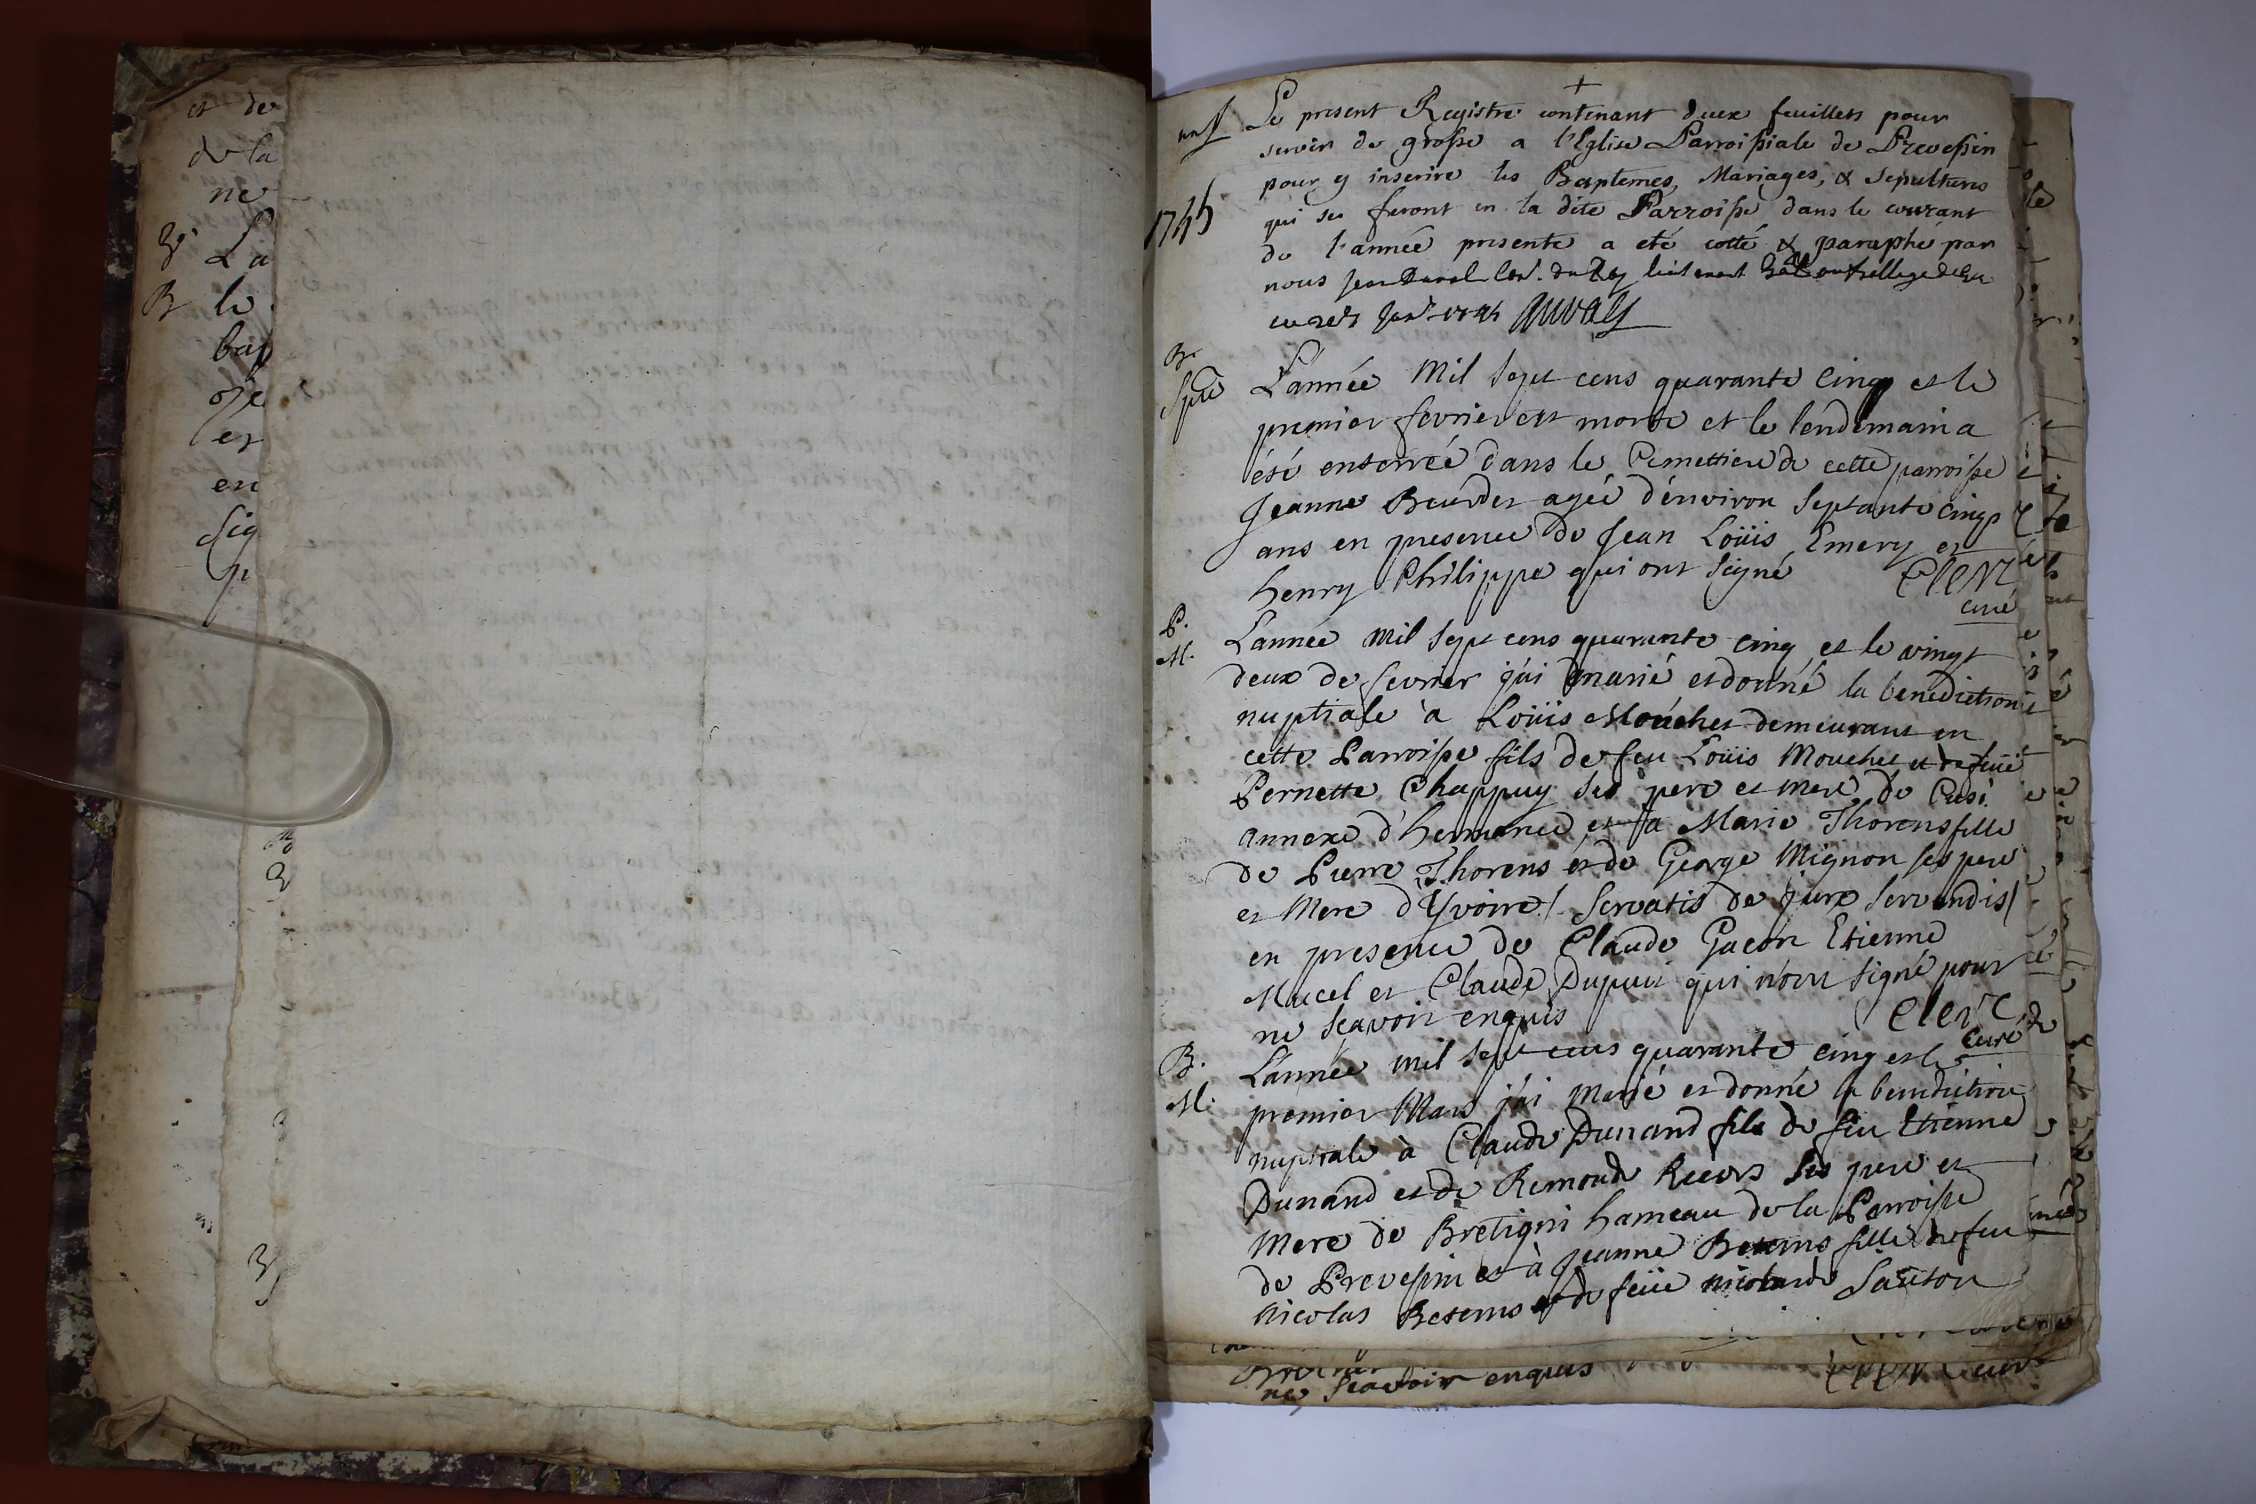 et de
de la
ne
La
B le
bap
et
en
sig
+
Le present Registre contenant deux feuillets pour
servir de grosse a l'Eglise Parroissiale de Prevessin
pour y inscrire les Baptemes, Mariages, & sepultures
1745 qui se feront en la dite Parroisse dans le courant
de l'année presente a eté cotté & paraphé par
nous Jean Duval Con.r du Roy lieutenant
Duval
B.
Spre L'année Mil Sept cens quarante Cinq et le
premier fevrier est morte et le lendemain a
été enterrée dans le Cimettiere de cette parroisse
Jeanne Beurdet agée d'environ Septante Cinq
ans en presence de Jean Loüis Emery et
henry Philippe qui ont signé Clerc
curé
P.
M. L'année Mil Sept cens quarante cinq et le vingt
deux de fevrier j'ai marié et donné la benediction
nuptiale à Loüis Mouchet demeurant en
cette Parroisse fils de feu Loüis Mouchet et de feüe
Pernette Chappuy ses pere et mere de Cusi
annexe d'hermance et à Marie Thorens fille
de Pierre Thorens et de George Mignon ses pere
et Mere d'Yvoire / Servatis de jure Servandis /
en presence de Claude Gacon Etienne
Mucel et Claude Dupuis qui n'ont signé pour
ne sçavoir enquis Clerc
Curé
B.
M. L'année mil sept cens quarante cinq et le
premier Mars j'ai Marié et donné la benediction
nuptiale à Claude Dunand fils de feu Etienne
Dunand et de Remonde ses pere et
Mere de Bretigni hameau de la Parroisse
de Prevessin et à Jeanne Betems fille de feu
Nicolas Betems et de feüe Nicolarde Sauton
ne sçavoir enquis Clerc Curé